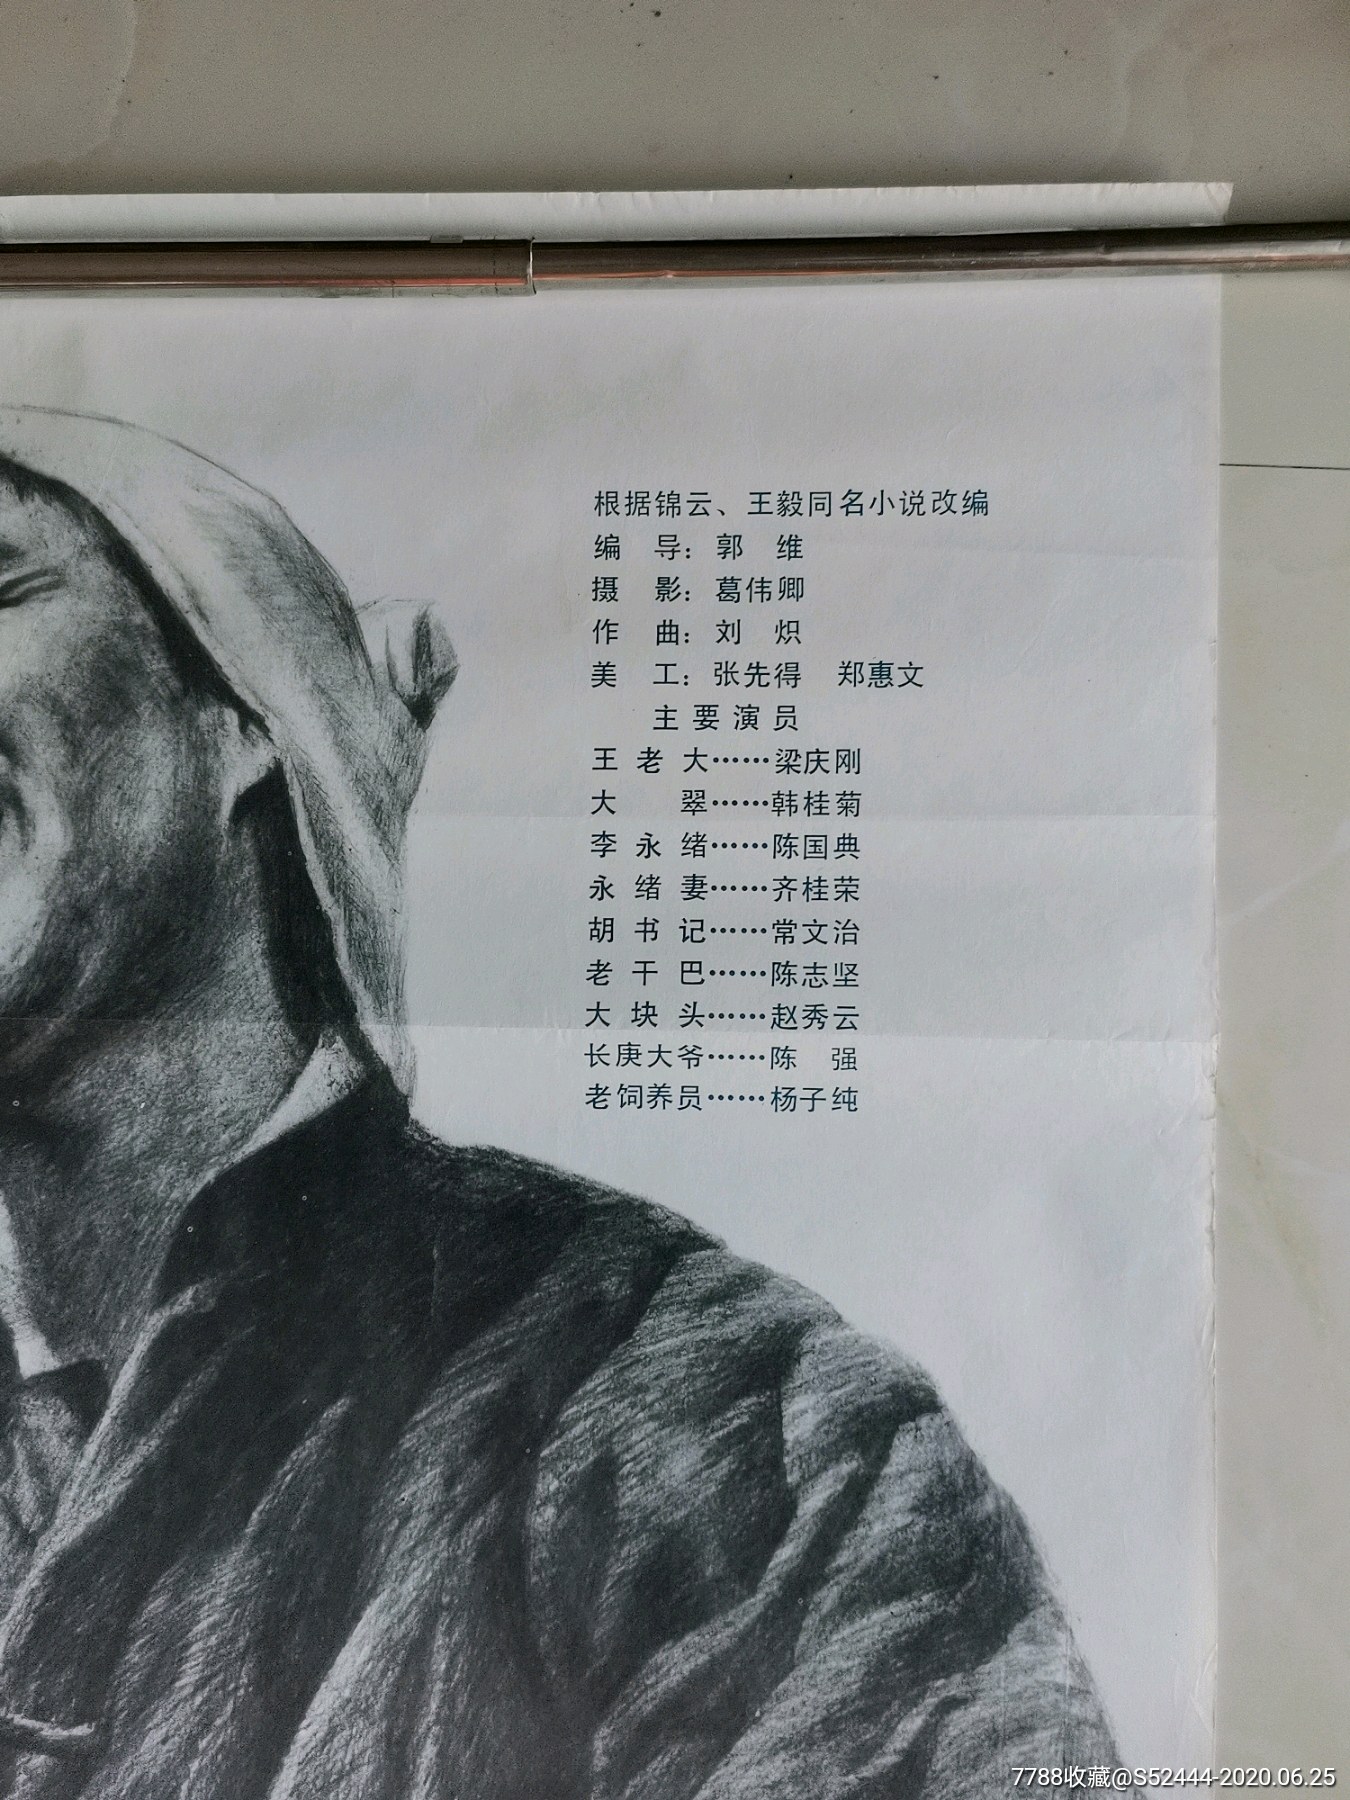 根据锦云、王毅同名小说改编
编 导：郭 维
摄 影：葛伟卿
作 曲：刘 炽
美 工：张先得 郑惠文
主要演员
王老大……梁庆刚
大 翠……韩桂菊
李永绪……陈国典
永绪妻……齐桂荣
胡书记……常文治
老干巴……陈志坚
大块头……赵秀云
长庚大爷……陈 强
老饲养员……杨子纯
7788收藏@S52444-2020.06.25